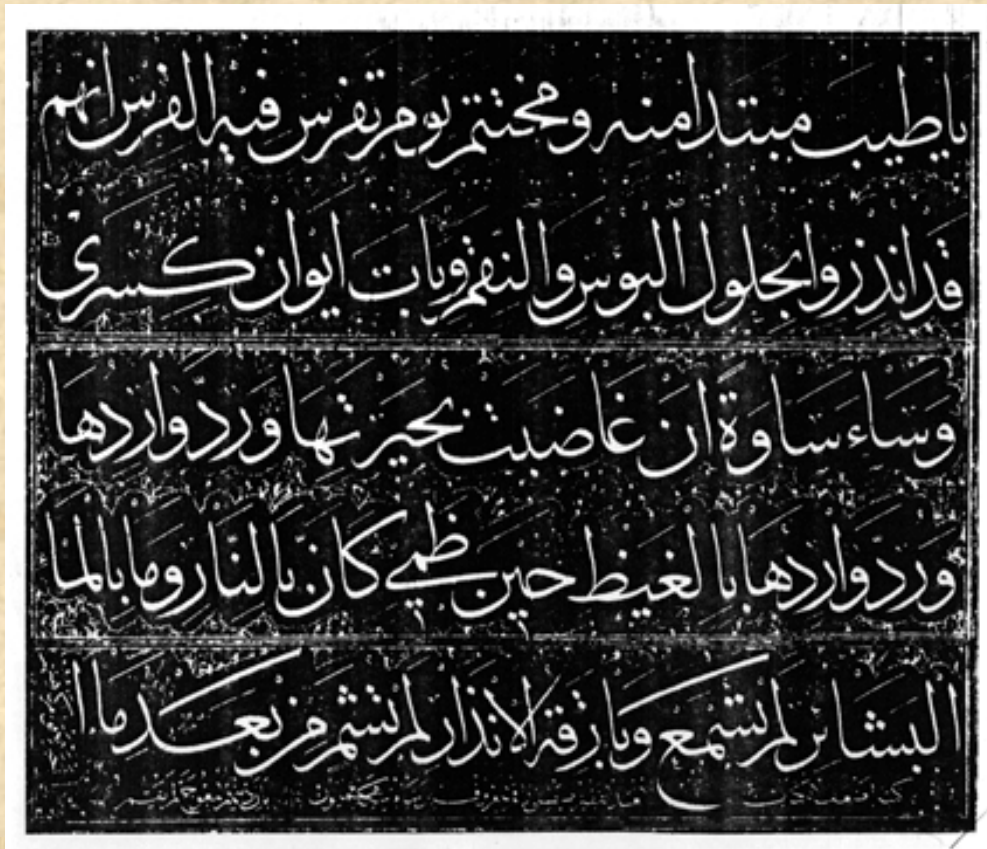 ياطيب مبتدا منه ومختتم يوم تفرس فيه الفرس انهم
قد انذروا بحلول البؤس والنقم وبات ايوان كسرى
وَسَاء سَاوَة ان غاضبت بحيرتها وردّ واردها
وردّ واردها بالغيظ حين ظمي كانّ بالنّار وما بالما
البشائر لم تسمع وبارقة الانذار لم تشم من بعد ما ا